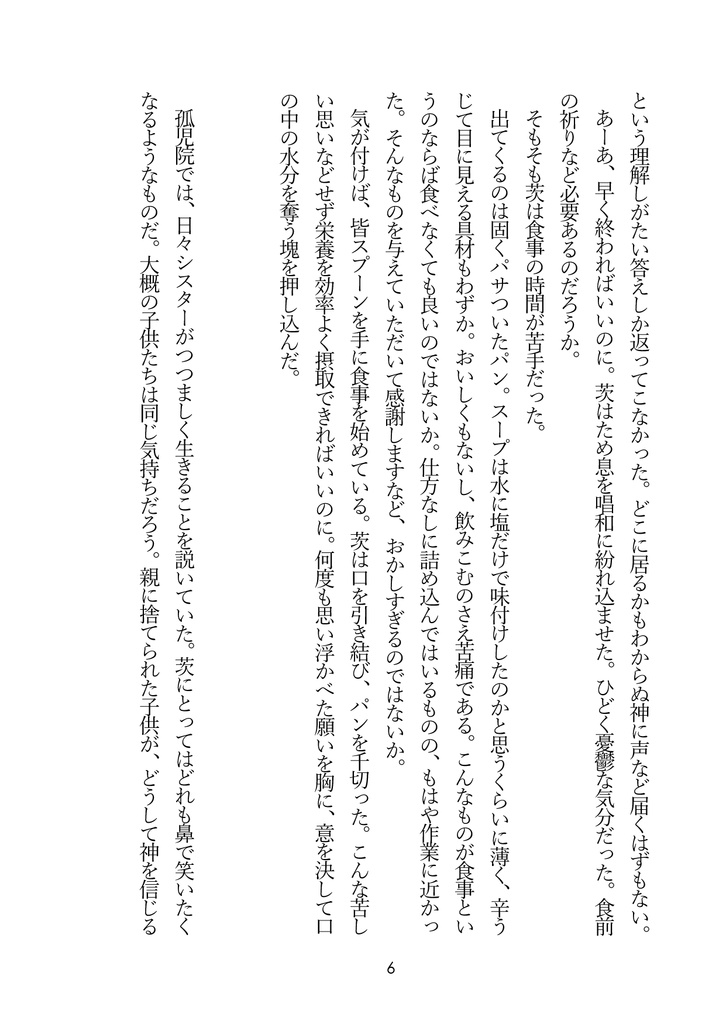 という理解しがたい答えしか返ってこなかった。どこに居るかもわからぬ神に声など届くはずもない。
　あーあ、早く終わればいいのに。茨はため息を唱和に紛れ込ませた。ひどく憂鬱な気分だった。食前
の祈りなど必要あるのだろうか。
　そもそも茨は食事の時間が苦手だった。
　出てくるのは固くパサついたパン。スープは水に塩だけで味付けしたのかと思うくらいに薄く、辛う
じて目に見える具材もわずか。おいしくもないし、飲みこむのさえ苦痛である。こんなものが食事とい
うのならば食べなくても良いのではないか。仕方なしに詰め込んではいるものの、もはや作業に近かっ
た。そんなものを与えていただいて感謝しますなど、おかしすぎるのではないか。
　気が付けば、皆スプーンを手に食事を始めている。茨は口を引き結び、パンを千切った。こんな苦し
い思いなどせず栄養を効率よく摂取できればいいのに。何度も思い浮かべた願いを胸に、意を決して口
の中の水分を奪う塊を押し込んだ。
　孤児院では、日々シスターがつつましく生きることを説いていた。茨にとってはどれも鼻で笑いたく
なるようなものだ。大概の子供たちは同じ気持ちだろう。親に捨てられた子供が、どうして神を信じる
6